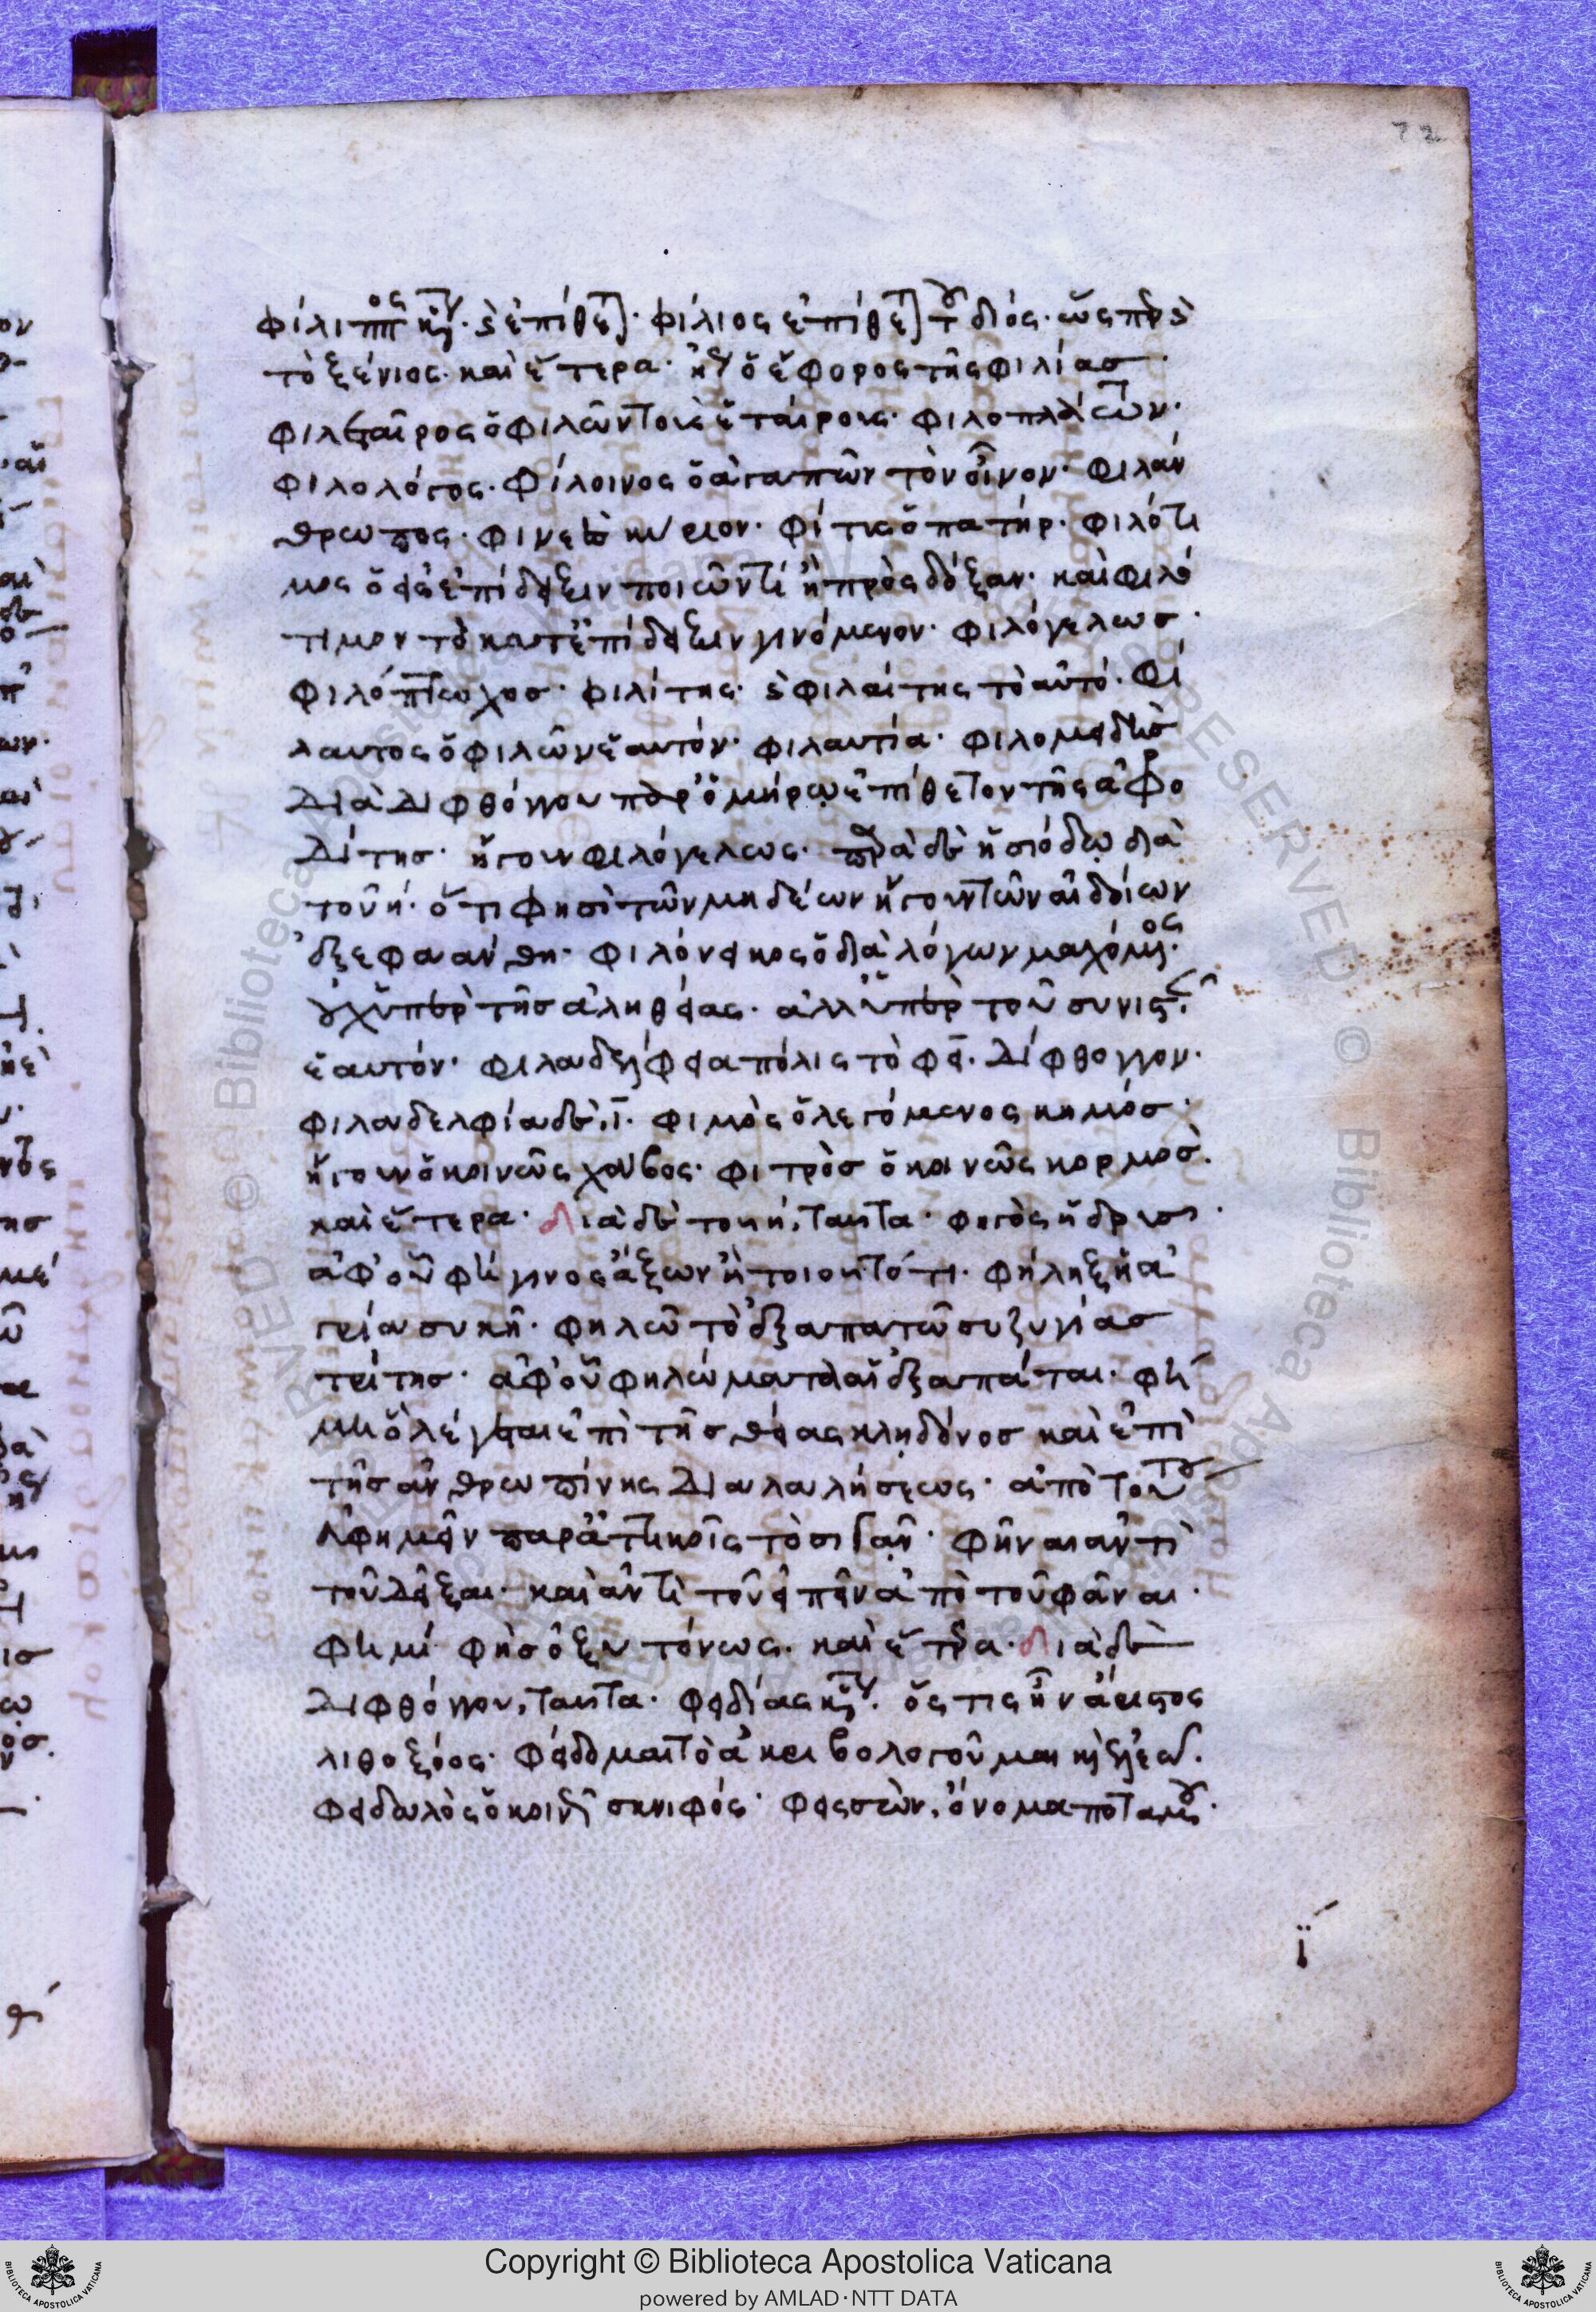 72
φίλιππος κύ· ϛ ἐπίθετ· φίλιος ἐπίθετ τ διός· ὥσπερ ϛ
τὸ ξένιος· καὶ ἕτερα· ὁ ἔφορος τῆς φιλίασ·
φιλέταιρος ὁ φιλῶν τοὺς ἑταίρους·
φιλολόγος· φίλοινος ὁ ἀγαπῶν τὸν οἶνον· φιλάν
θρωπος· κύριον· φίτυς ὁ πατήρ· φιλότι
μος ὁ εἰς ἐπίδειξιν ποιῶν τί ἢ πρὸς δόξαν· καὶ φιλό
τιμον τὸ κατ ἐπίδειξιν γινόμενον· φιλόγελωσ·
φιλόπτωχοσ· φιλίτης· ϛ φιλαίτης τὸ αὐτό· φί
λαυτος ὁ φιλῶν ἑαυτόν· φιλαυτία· φιλομειδὴσ
διὰ διφθόγγου παρ ὁμήρῳ ἐπίθετον τῆς ἀφρο
δίτησ· ἤγουν φιλόγελως· παρὰ δὲ ἡσιόδῳ διὰ
τοῦ ή· ὅτι φησὶ τῶν μηδέων ἤγουν τῶν αἰδοίων
ἐξεφαάνθη· φιλόνεικος ὁ διὰ λόγων μαχόμενος·
οὐχ ὑπὲρ τῆσ ἀληθείας· ἀλλ ὑπὲρ τοῦ συνιστ
ἑαυτόν· φιλαδέλφεια πόλις τὸ φει· δίφθογγον·
φιλαδελφία δὲ, ϊ· φιμὸς ὁ λεγόμενος κημόσ·
ἤγουν ὁ κοινῶς χάβος· φιτρὸσ ὁ κοινῶς κορμοσ·
καὶ ἕτερα· διὰ δὲ τοῦ ή, ταῦτα· φηγὸς ἡ δρῦσ·
ἀφ οὗ φήγινος ἄξων ἢ τοιοῦτό τι· φήληξ ἡ ἀ
γρία συκῆ· φηλῶ τὸ ἐξαπατῶ συζυγίασ
τρίτησ· ἀφ οὗ φηλώματα αἱ ἐξαπάται· φή
μη ὃ λέγεται ἐπὶ τῆσ θείας κληδόνοσ καὶ ἐπὶ
τῆσ ἀνθρωπίνης διαλαλήσεως· ἀπὸ τούτου
εὐφημεῖν παρ ἀττικοῖς τὸ σιγᾶν· φῆναι ἀντὶ
τοῦ δεῖξαι· καὶ ἀντὶ τοῦ εἰπεῖν ἀπὸ τοῦ φᾶναι·
φημί· φὴσ ὀξυτόνως· καὶ ἕτερα· διὰ δὲ
διφθόγγου, ταῦτα· φειδίας κύ· ὅς τις ἦν ἄριστος
λιθοξόος· φείδομαι τὸ ἀκριβολογοῦμαι κ ἐλεῶ·
φειδωλὸς ὁ κοινῶς σκνιφός· ὄνομα ποταμοῦ·
ϊ
Copyright © Biblioteca Apostolica Vaticana
powered by AMLAD·NTT DATA